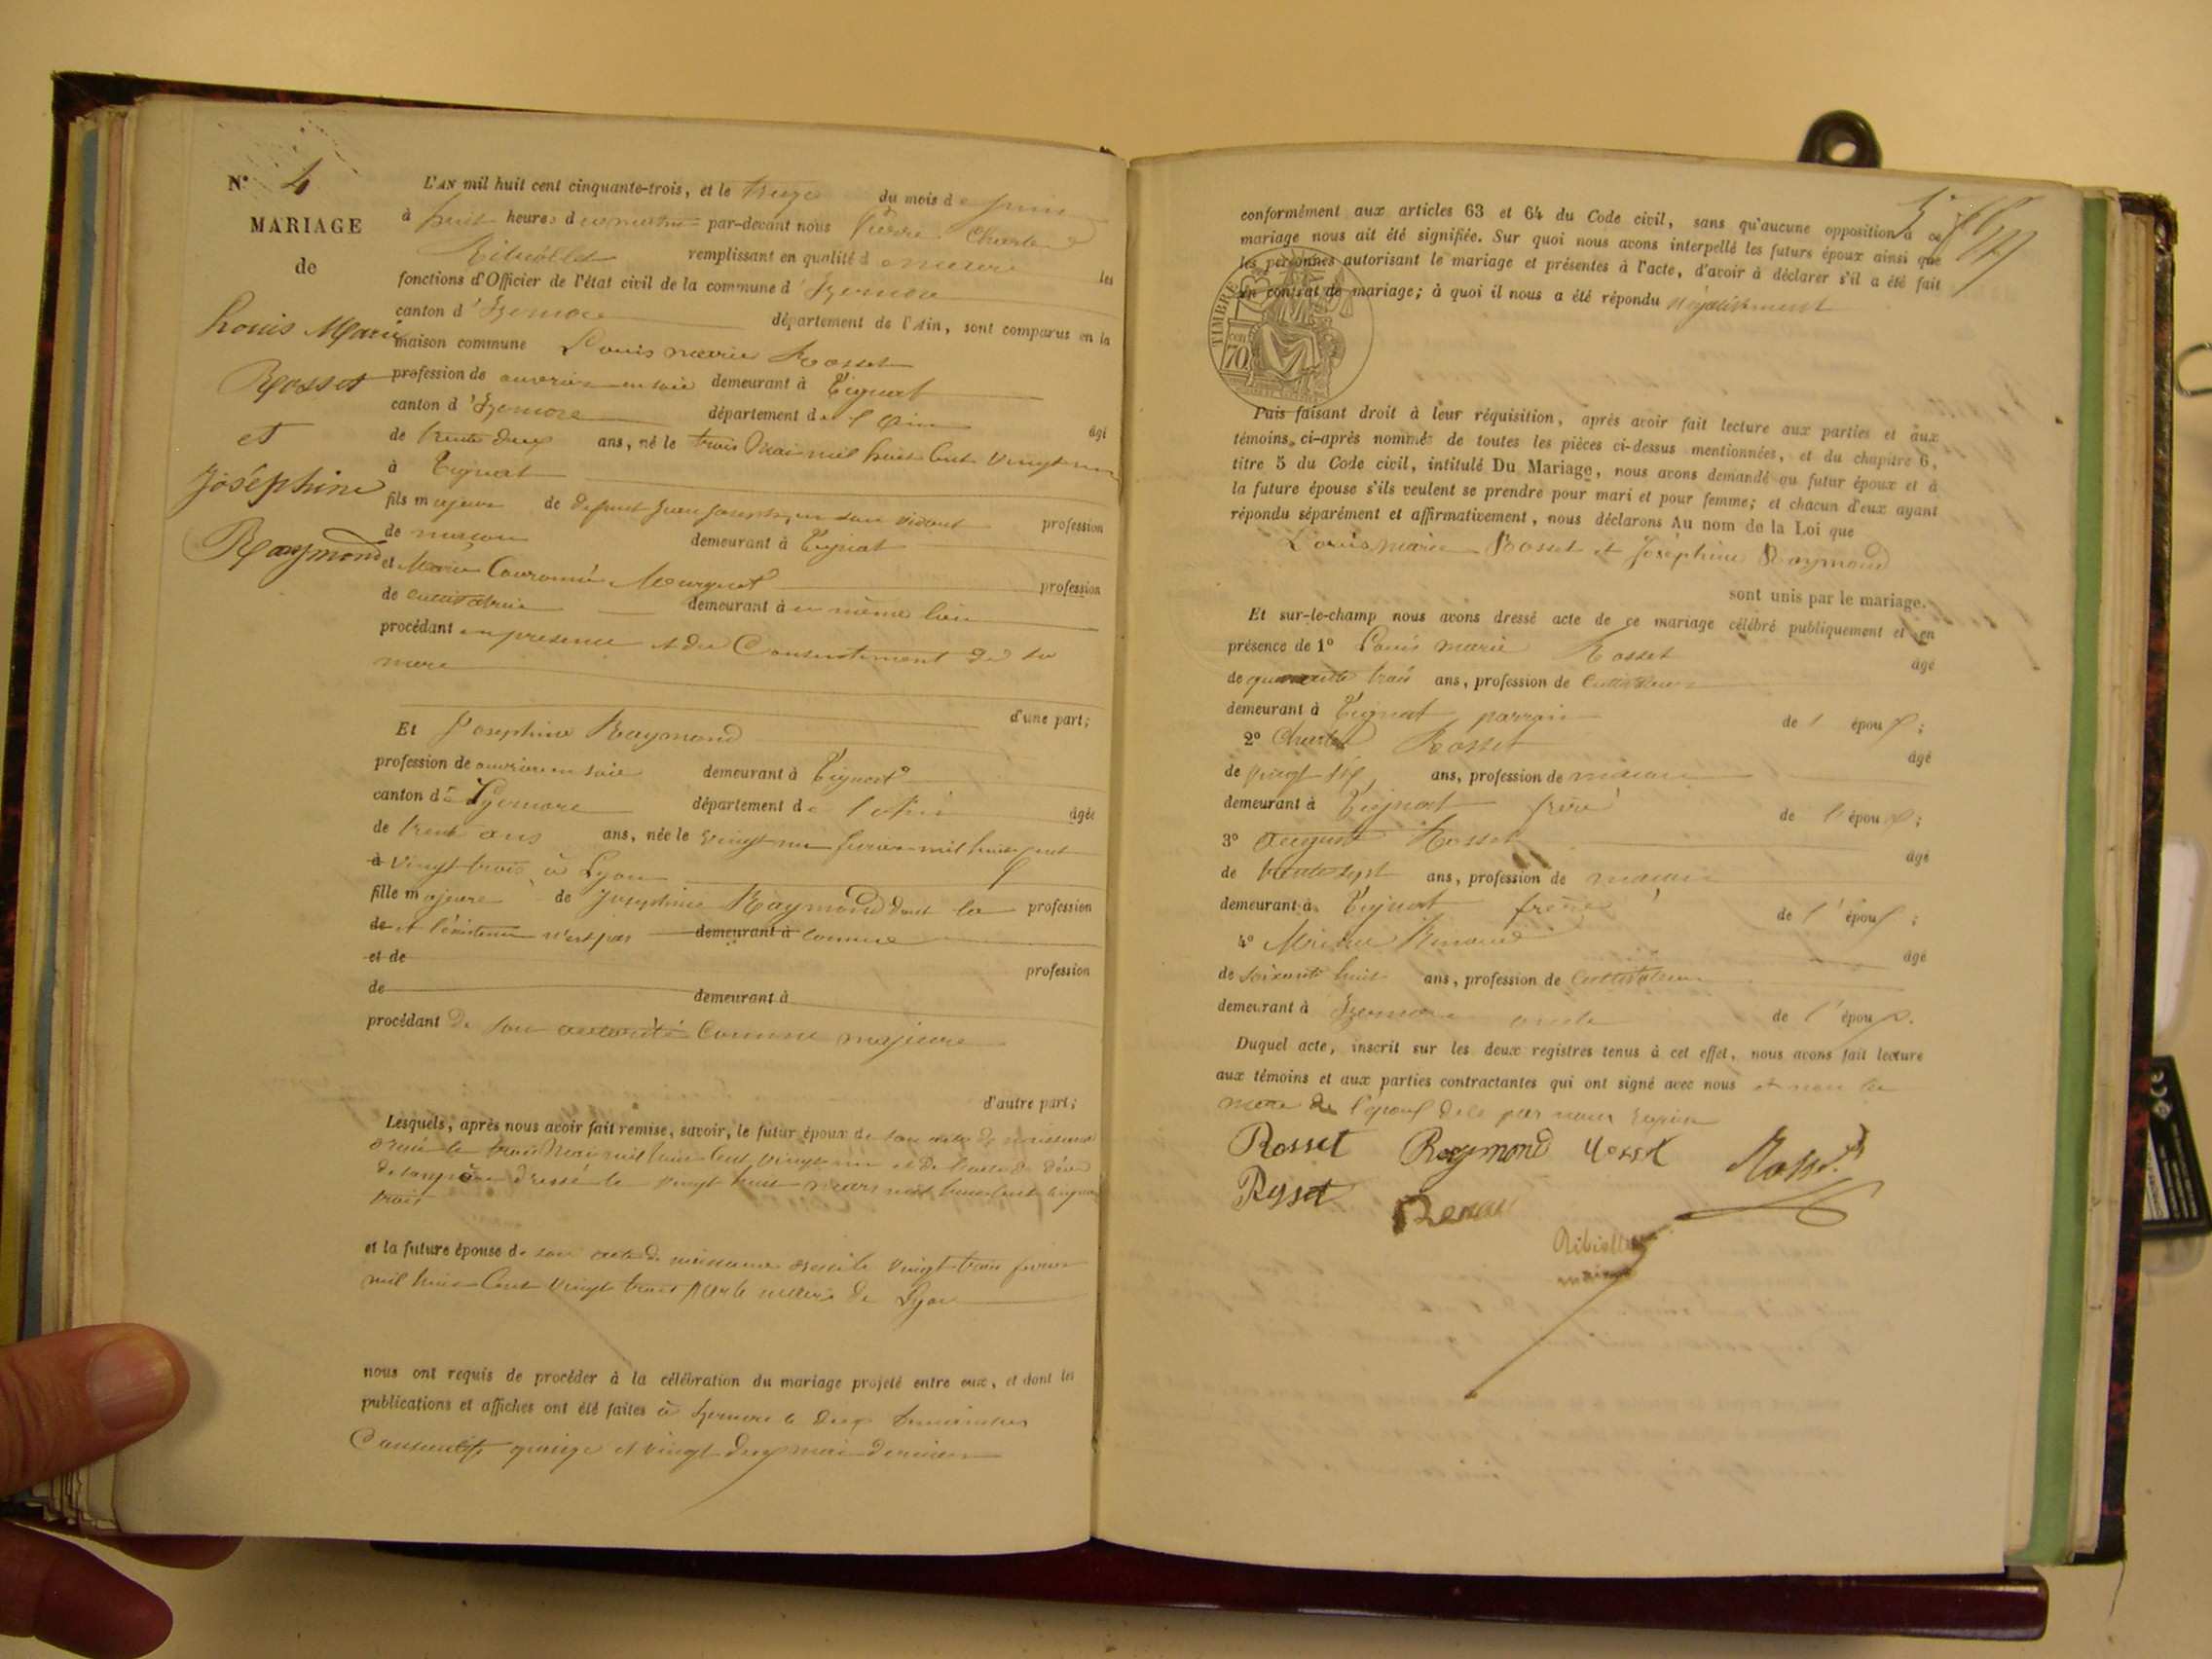 N° 4
MARIAGE
de
Louis Marie
Rosset
et
Joséphine
Raymond
L'AN mil huit cent cinquante-trois, et le treize du mois de juin
à huit heures du matin par-devant nous Pierre Charles
Ribiollet remplissant en qualité de maire les
fonctions d'Officier de l'état civil de la commune d'Izernore
canton d'Izernore département de l'Ain, sont comparus en la
maison commune Louis marie Rosset
profession de ouvrier en soie demeurant à Tignat
canton d'Izernore département de l'ain âgé
de trente deux ans, né le trois Mai mil huit Cent vingt un
à Tignat
fils majeur de defunt Jean Joseph, en son vivant profession
de macon demeurant à Tignat
et Marie Couronné Mourgnet profession
de cultivatrice demeurant à en même lieu
procédant en presence et du Consentement de sa
mere
d'une part;
Et Josephine Raymond
profession de ouvriere en soie demeurant à Tignat
canton d'Izernore département de l'ain âgée
de trente ans ans, née le vingt un fevrier mil huit cent
à vingt trois à Lyon
fille majeure de Josephine Raymond dont la profession
de et l'existence n'est pas demeurant à connue
et de profession
de demeurant à
procédant de son autorité Comme majeure
d'autre part;
Lesquels, après nous avoir fait remise, savoir, le futur époux de son acte de naissance
dressé le trois Mai mil huit Cent vingt un et de l'acte de décès
de son père dressé le vingt huit mars mil huit cent cinquante
trois
et la future épouse de son acte de naissance dressé le vingt trois fevrier
mil huit Cent vingt trois par le maire de Lyon
nous ont requis de procéder à la célébration du mariage projeté entre eux, et dont les
publications et affiches ont été faites à Izernore le deux dimanches
Consecutifs quinze et vingt deux mai dernier
conformément aux articles 63 et 64 du Code civil, sans qu'aucune opposition à ce
mariage nous ait été signifiée. Sur quoi nous avons interpellé les futurs époux ainsi que
les personnes autorisant le mariage et présentes à l'acte, d'avoir à déclarer s'il a été fait
un contrat de mariage; à quoi il nous a été répondu négativement
TIMBRE
70
Puis faisant droit à leur réquisition, après avoir fait lecture aux parties et aux
témoins ci-après nommés de toutes les pièces ci-dessus mentionnées, et du chapitre 6,
titre 5 du Code civil, intitulé Du Mariage, nous avons demandé au futur époux et à
la future épouse s'ils veulent se prendre pour mari et pour femme; et chacun d'eux ayant
répondu séparément et affirmativement, nous déclarons Au nom de la Loi que
Louis marie Rosset et Joséphine Raymond
sont unis par le mariage.
Et sur-le-champ nous avons dressé acte de ce mariage célébré publiquement et en
présence de 1° Louis marie Rosset âgé
de quarante trois ans, profession de Cultivateur
demeurant à Tignat parrain de l'époux;
2° Charles Rosset âgé
de vingt six ans, profession de macon
demeurant à Tignat frère de l'époux;
3° august Rosset âgé
de trente sept ans, profession de macon
demeurant à Tignat frère de l'époux;
4° Renaud âgé
de soixante huit ans, profession de Cultivateur
demeurant à Izernore oncle de l'époux.
Duquel acte, inscrit sur les deux registres tenus à cet effet, nous avons fait lecture
aux témoins et aux parties contractantes qui ont signé avec nous et non la
mere de l'époux de ce par nous requise
Rosset Raymond Rosset Rosset
Rosset Renau
Ribiollet
maire